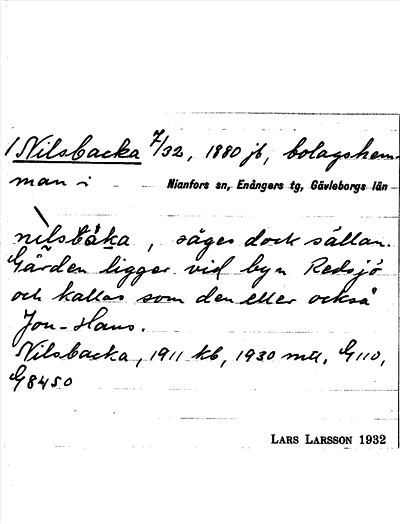 1 Nilsbacka 7/32, 1880 jb, bolagshem-
man i Nianfors sn, Enångers tg, Gävleborgs län
nìlsbáka, säges dock sällan.
Gården ligger vid byn Redsjö
och kallas som den eller också
Jon-Hans.
Nilsbacka, 1911 kb, 1930 mtl, G110,
G8450
LARS LARSSON 1932